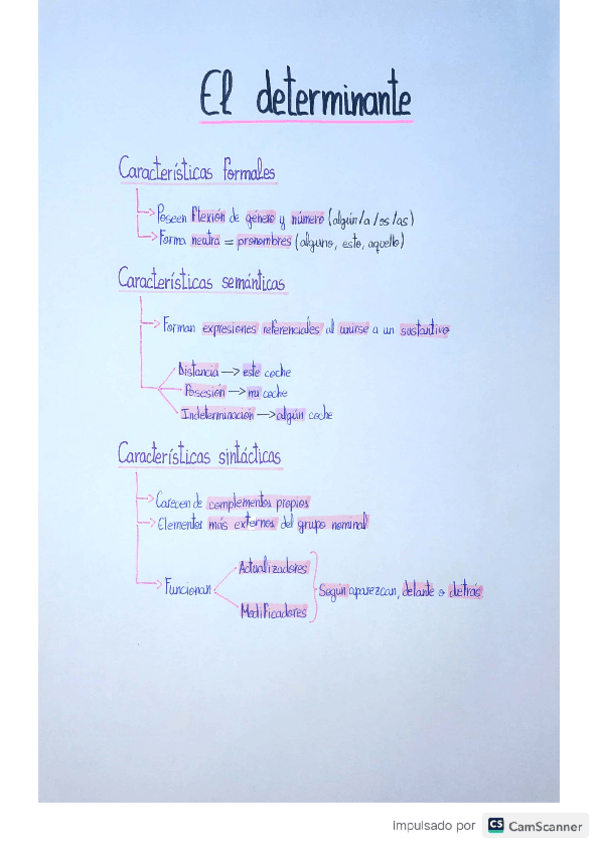 El determinante
Características formales
Poseen flexión de género y número (algún/a/os/as)
Forma neutra = pronombres (alguno, esto, aquello)
Características semánticas
Forman expresiones referenciales al unirse a un sustantivo
Distancia → este coche
Posesión → mi coche
Indeterminación → algún coche
Características sintácticas
Carecen de complementos propios
Elementos más externos del grupo nominal
Actualizadores
Funcionan
Según aparezcan, delante o detrás
Modificadores
Impulsado por CS CamScanner